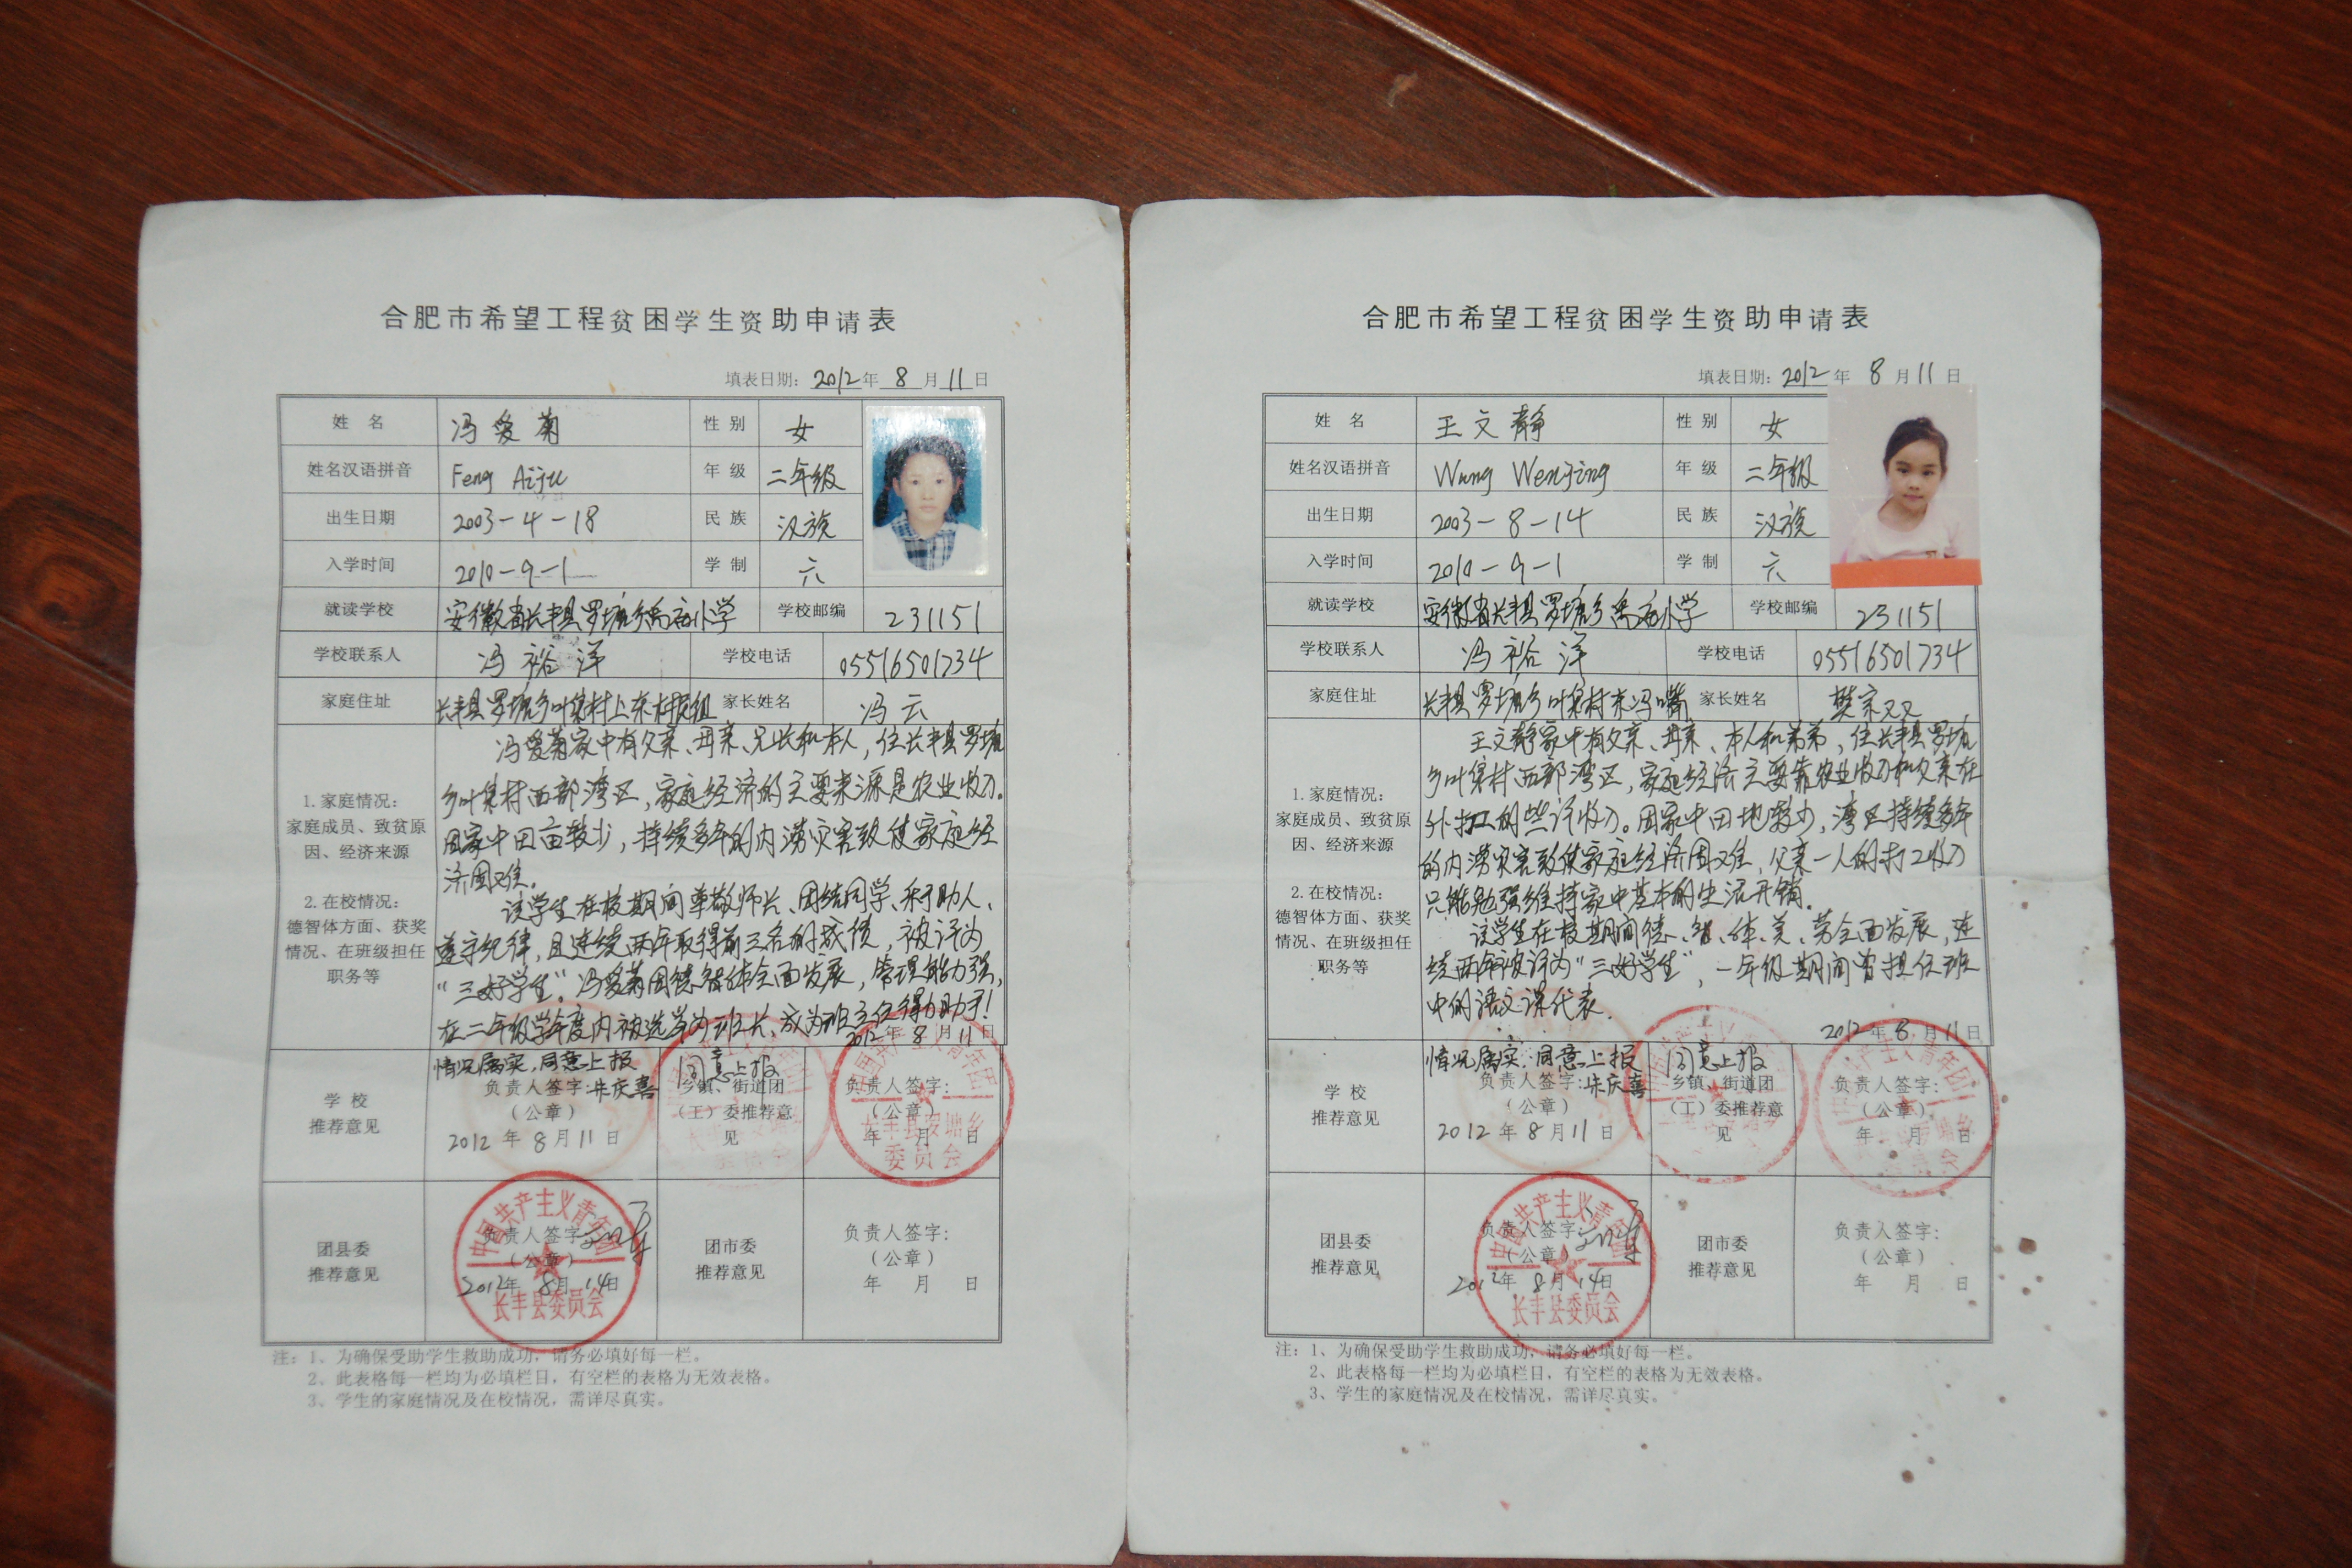 合肥市希望工程贫困学生资助申请表
填表日期：2012年 8 月 11 日
姓 名 冯爱菊 性 别 女
姓名汉语拼音 Feng Aiju 年 级 二年级
出生日期 2003-4-18 民 族 汉族
入学时间 2010-9-1 学 制 六
就读学校 安徽省长丰县罗塘乡禹庙小学 学校邮编 231151
学校联系人 冯裕洋 学校电话 05516501734
家庭住址 长丰县罗塘乡叶集村上东村民组 家长姓名 冯云
1.家庭情况：
家庭成员、致贫原
因、经济来源
2.在校情况：
德智体方面、获奖
情况、在班级担任
职务等
冯爱菊家中有父亲、母亲、兄长和本人，住长丰县罗塘
乡叶集村西部湾区，家庭经济的主要来源是农业收入。
因家中田亩较少，持续多年的内涝灾害致使家庭经
济困难。
该学生在校期间尊敬师长、团结同学、乐于助人、
遵守纪律，且连续两年取得前三名的成绩，被评为
“三好学生”。冯爱菊因德智体全面发展，管理能力强，
在二年级学年度内被选举为班长，成为班主任得力助手！
2012年 8 月 11 日
学 校
推荐意见
情况属实，同意上报
负责人签字：朱庆喜
（公章）
2012 年 8 月 11 日
同意上报
乡镇、街道团
（工）委推荐意
见
负责人签字：
（公章）
年 月 日
委员会
团县委
推荐意见
负责人签字：
（公章）
2012年 8月 14日
中国共产主义青年团
长丰县委员会
团市委
推荐意见
负责人签字：
（公章）
年 月 日
注：1、为确保受助学生救助成功，请务必填好每一栏。
2、此表格每一栏均为必填栏目，有空栏的表格为无效表格。
3、学生的家庭情况及在校情况，需详尽真实。
合肥市希望工程贫困学生资助申请表
填表日期：2012 年 8 月 11 日
姓 名 王文静 性 别 女
姓名汉语拼音 Wang Wenjing 年 级 二年级
出生日期 2003-8-14 民 族 汉族
入学时间 2010-9-1 学 制 六
就读学校 安徽省长丰县罗塘乡禹庙小学 学校邮编 231151
学校联系人 冯裕洋 学校电话 05516501734
家庭住址 长丰县罗塘乡叶集村东冯嘴 家长姓名 樊宗又又
1.家庭情况：
家庭成员、致贫原
因、经济来源
2.在校情况：
德智体方面、获奖
情况、在班级担任
职务等
王文静家中有父亲、母亲、本人和弟弟，住长丰县罗塘
乡叶集村西部湾区，家庭经济主要靠农业收入和父亲在
外打工的些许收入。因家中田地较少，湾区持续多年
的内涝灾害致使家庭经济困难，父亲一人的打工收入
只能勉强维持家中基本的生活开销。
该学生在校期间德、智、体、美、劳全面发展，连
续两年被评为“三好学生”，一年级期间曾担任班
中的语文课代表。
2012年 8 月 11 日
学 校
推荐意见
情况属实，同意上报
负责人签字：朱庆喜
（公章）
2012 年 8 月 11 日
同意上报
乡镇、街道团
（工）委推荐意
见
负责人签字：
（公章）
年 月 日
团县委
推荐意见
负责人签字：
（公章）
2012年 8月 14日
中国共产主义青年团
长丰县委员会
团市委
推荐意见
负责人签字：
（公章）
年 月 日
注：1、为确保受助学生救助成功，请务必填好每一栏。
2、此表格每一栏均为必填栏目，有空栏的表格为无效表格。
3、学生的家庭情况及在校情况，需详尽真实。